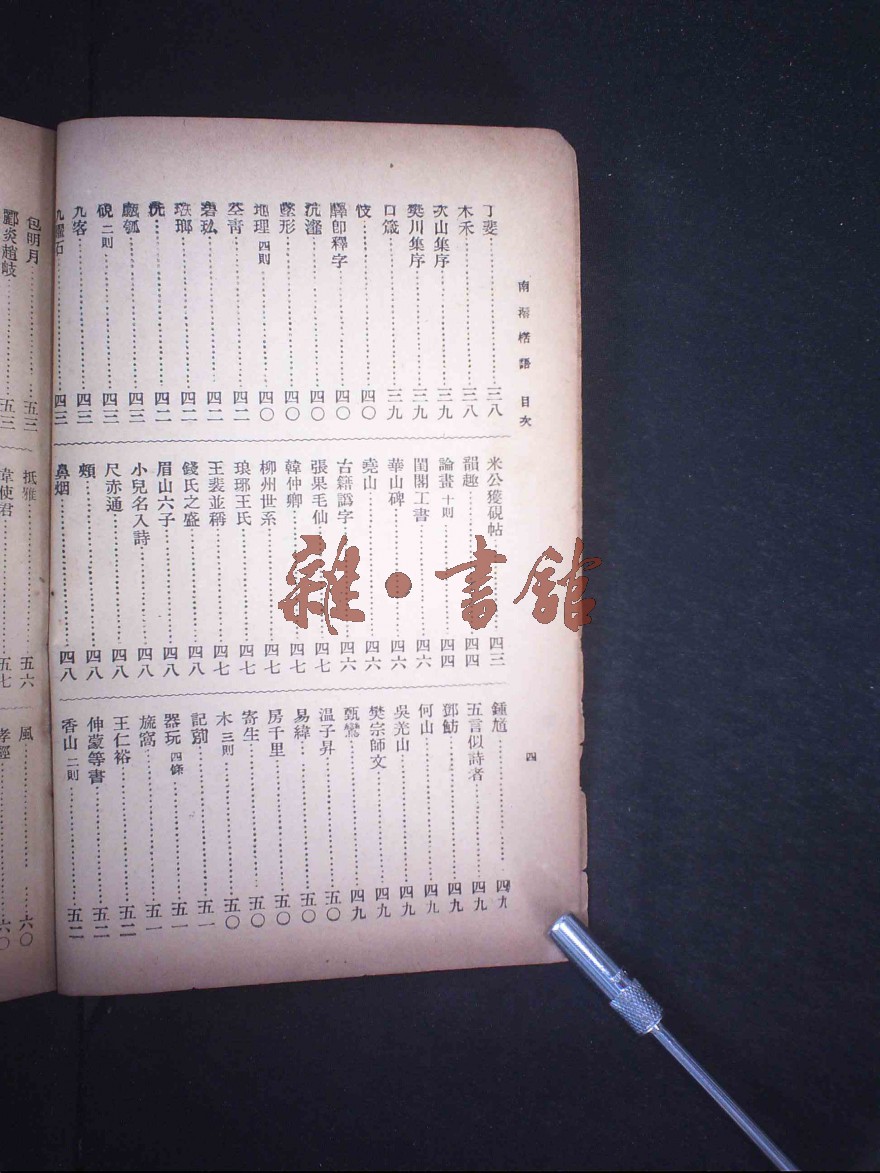 南漘楛語　目次
四
丁斐……三八
木禾……三八
次山集序……三九
樊川集序……三九
口箴……三九
忮……四〇
驛卽釋字……四〇
沆瀣……四〇
墜形……四〇
地理　四則……四〇
空青……四二
碧玈……四二
珠瑯……四二
洗……四二
甌瓠……四三
硯　二則……四三
九客……四三
九曜石……四三
米公獲硯帖……四三
韻趣……四四
論畫　十則……四四
閨閣工書……四六
華山碑……四六
堯山……四六
古籍譌字……四六
張果毛仙……四七
韓仲卿……四七
柳州世系……四七
琅琊王氏……四七
王裴並稱……四七
錢氏之盛……四八
眉山六子……四八
小兒名入詩……四八
尺赤通……四八
頰……四八
鼻烟……四八
鍾馗……四九
五言似詩者……四九
鄧魴……四九
何山……四九
吳羌山……四九
樊宗師文……四九
甄鸞……四九
温子昇……五〇
易緯……五〇
房千里……五〇
寄生……五〇
木　三則……五〇
記莂……五一
器玩　四條……五一
旋窩……五一
王仁裕……五二
伸蒙等書……五二
香山　二則……五二
包明月……五三
酈炎趙岐……五三
抵雅……五六
韋使君……五七
風……六〇
孝經……六〇
雜·書館